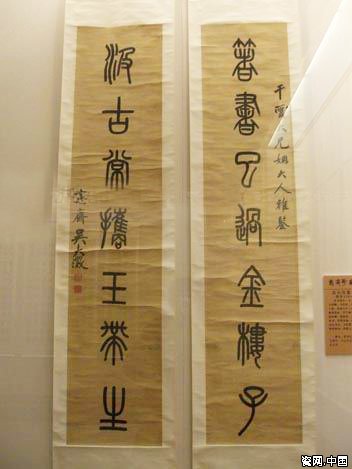 箸書已過金樓子
大兄姻大人雅鑒
汲古常攜玉帶生
愙齋吳大澂
瓷网.中国